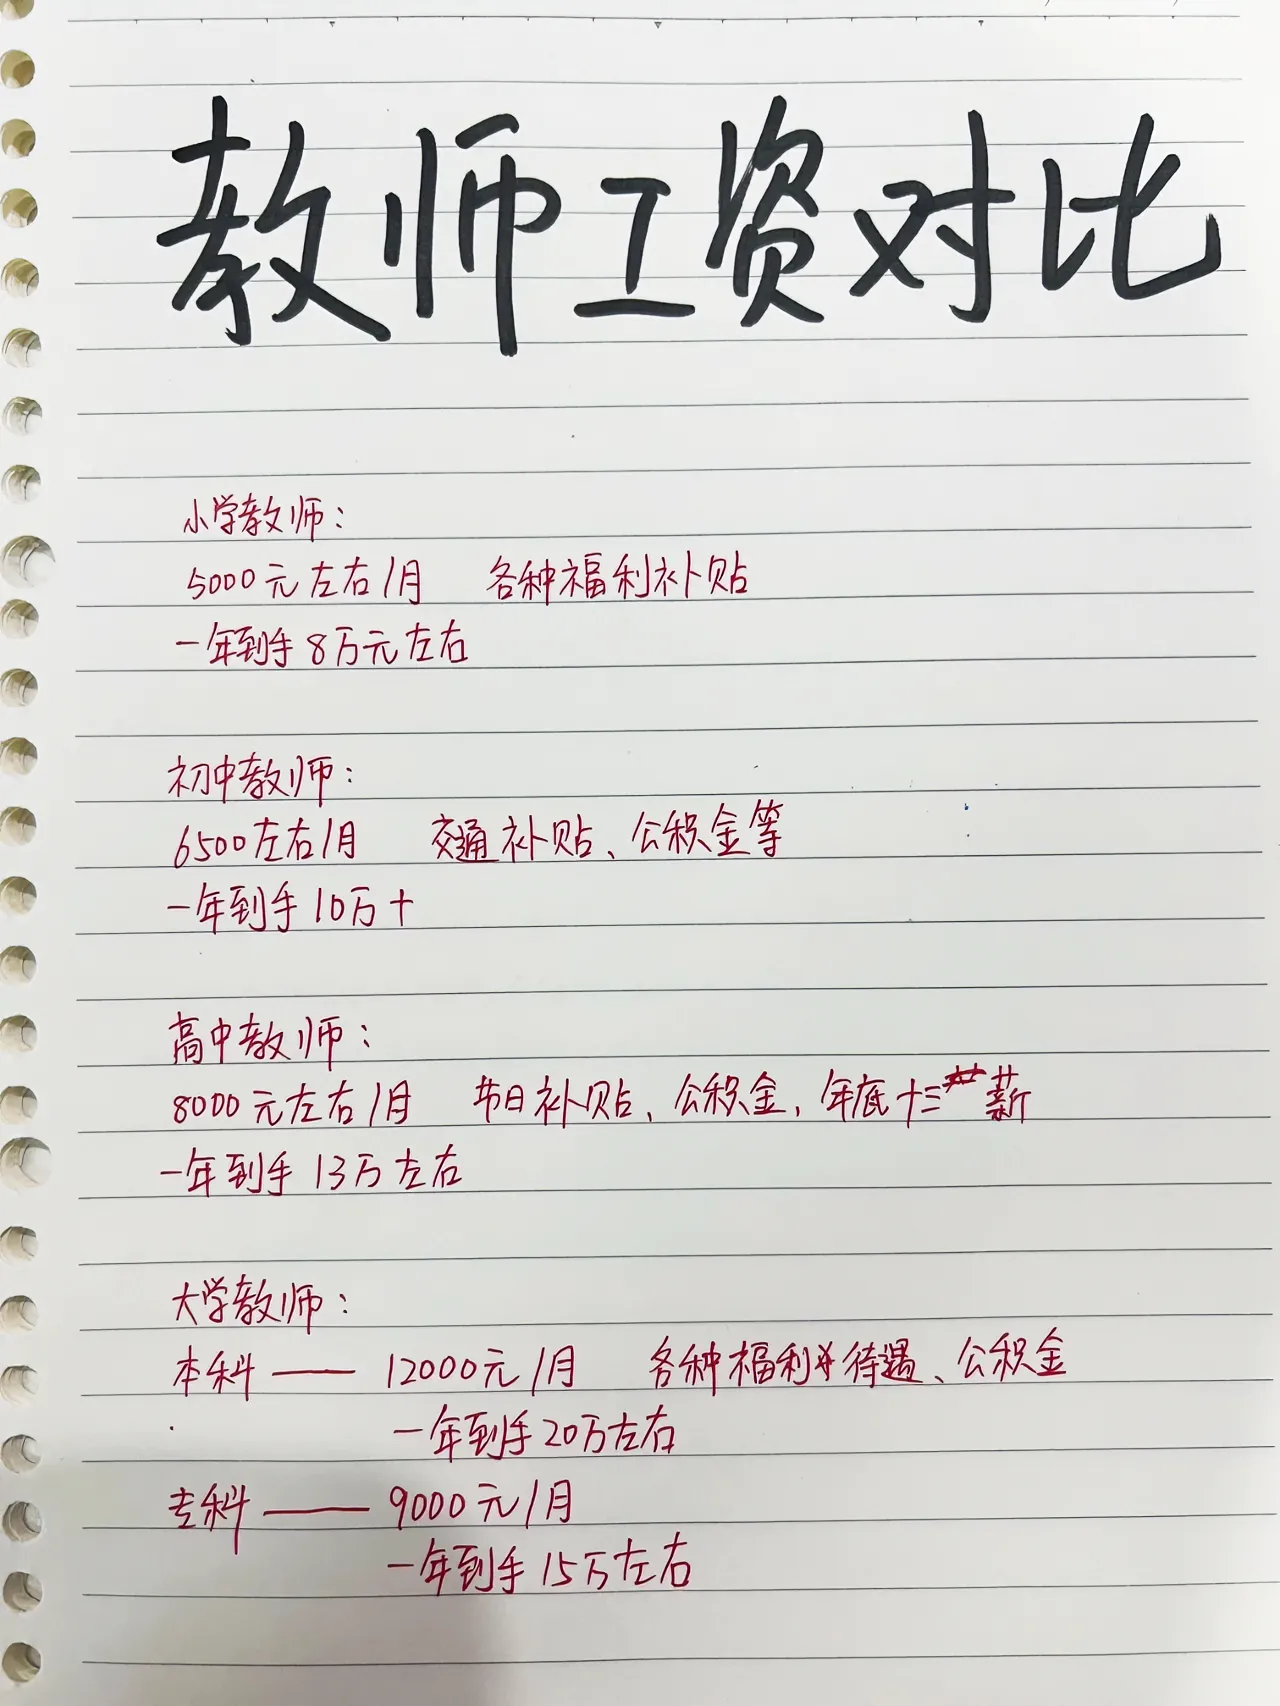 教师工资对比
小学教师：
5000元左右/月 各种福利补贴
一年到手8万元左右
初中教师：
6500左右/月 交通补贴、公积金等
一年到手10万+
高中教师：
8000元左右/月 节日补贴、公积金，年底十三薪
一年到手13万左右
大学教师：
本科——12000元/月 各种福利待遇、公积金
一年到手20万左右
专科——9000元/月
一年到手15万左右